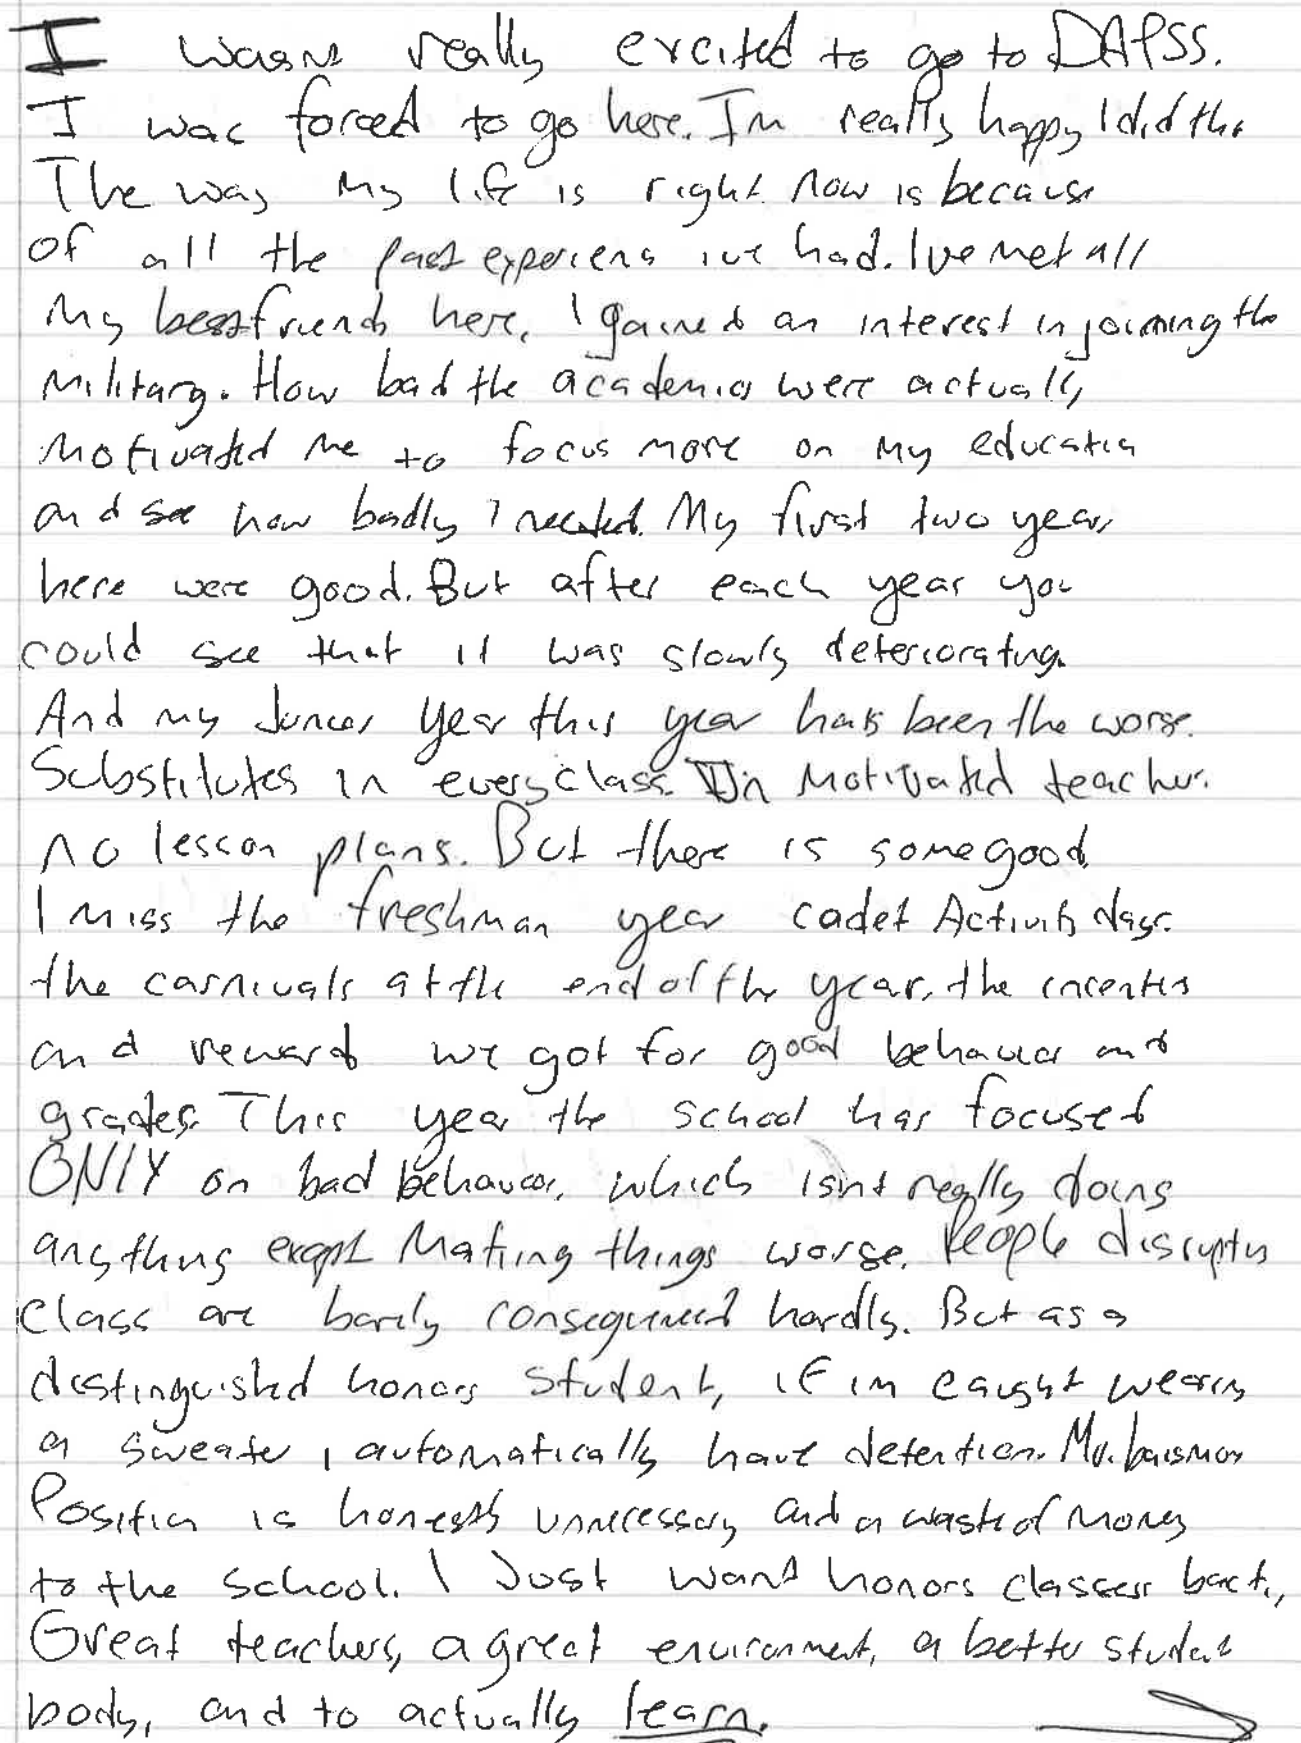 I wasnt really excited to go to DAPSS.
I was forced to go here. Im really happy I did tho
The way my life is right now is because
of all the past experiens ive had. Ive met all
my best friends here. I gained an interest in joining the
military. How bad the academics were actually
motivated me to focus more on my education
and see how badly I needed. My first two years
here were good. But after each year you
could see that it was slowly deteriorating.
And my Junior year this year has been the worse.
Substitutes in every class. Un motivated teachers.
no lesson plans. But there is some good.
I miss the freshman year cadet Activity days.
the carnivals at the end of the year, the incentives
and rewards we got for good behavior and
grades. This year the school has focused
ONLY on bad behavior, which isnt really doing
anything except Making things worse. People disrupting
class are barely consequenced hardly. But as a
distinguished honors student, if im caught wearing
a sweater, I automatically have detention. Mr.
Position is honestly unnecessary and a waste of money
to the school. I Just want honors classes back,
Great teachers, a great environment, a better student
body, and to actually learn.